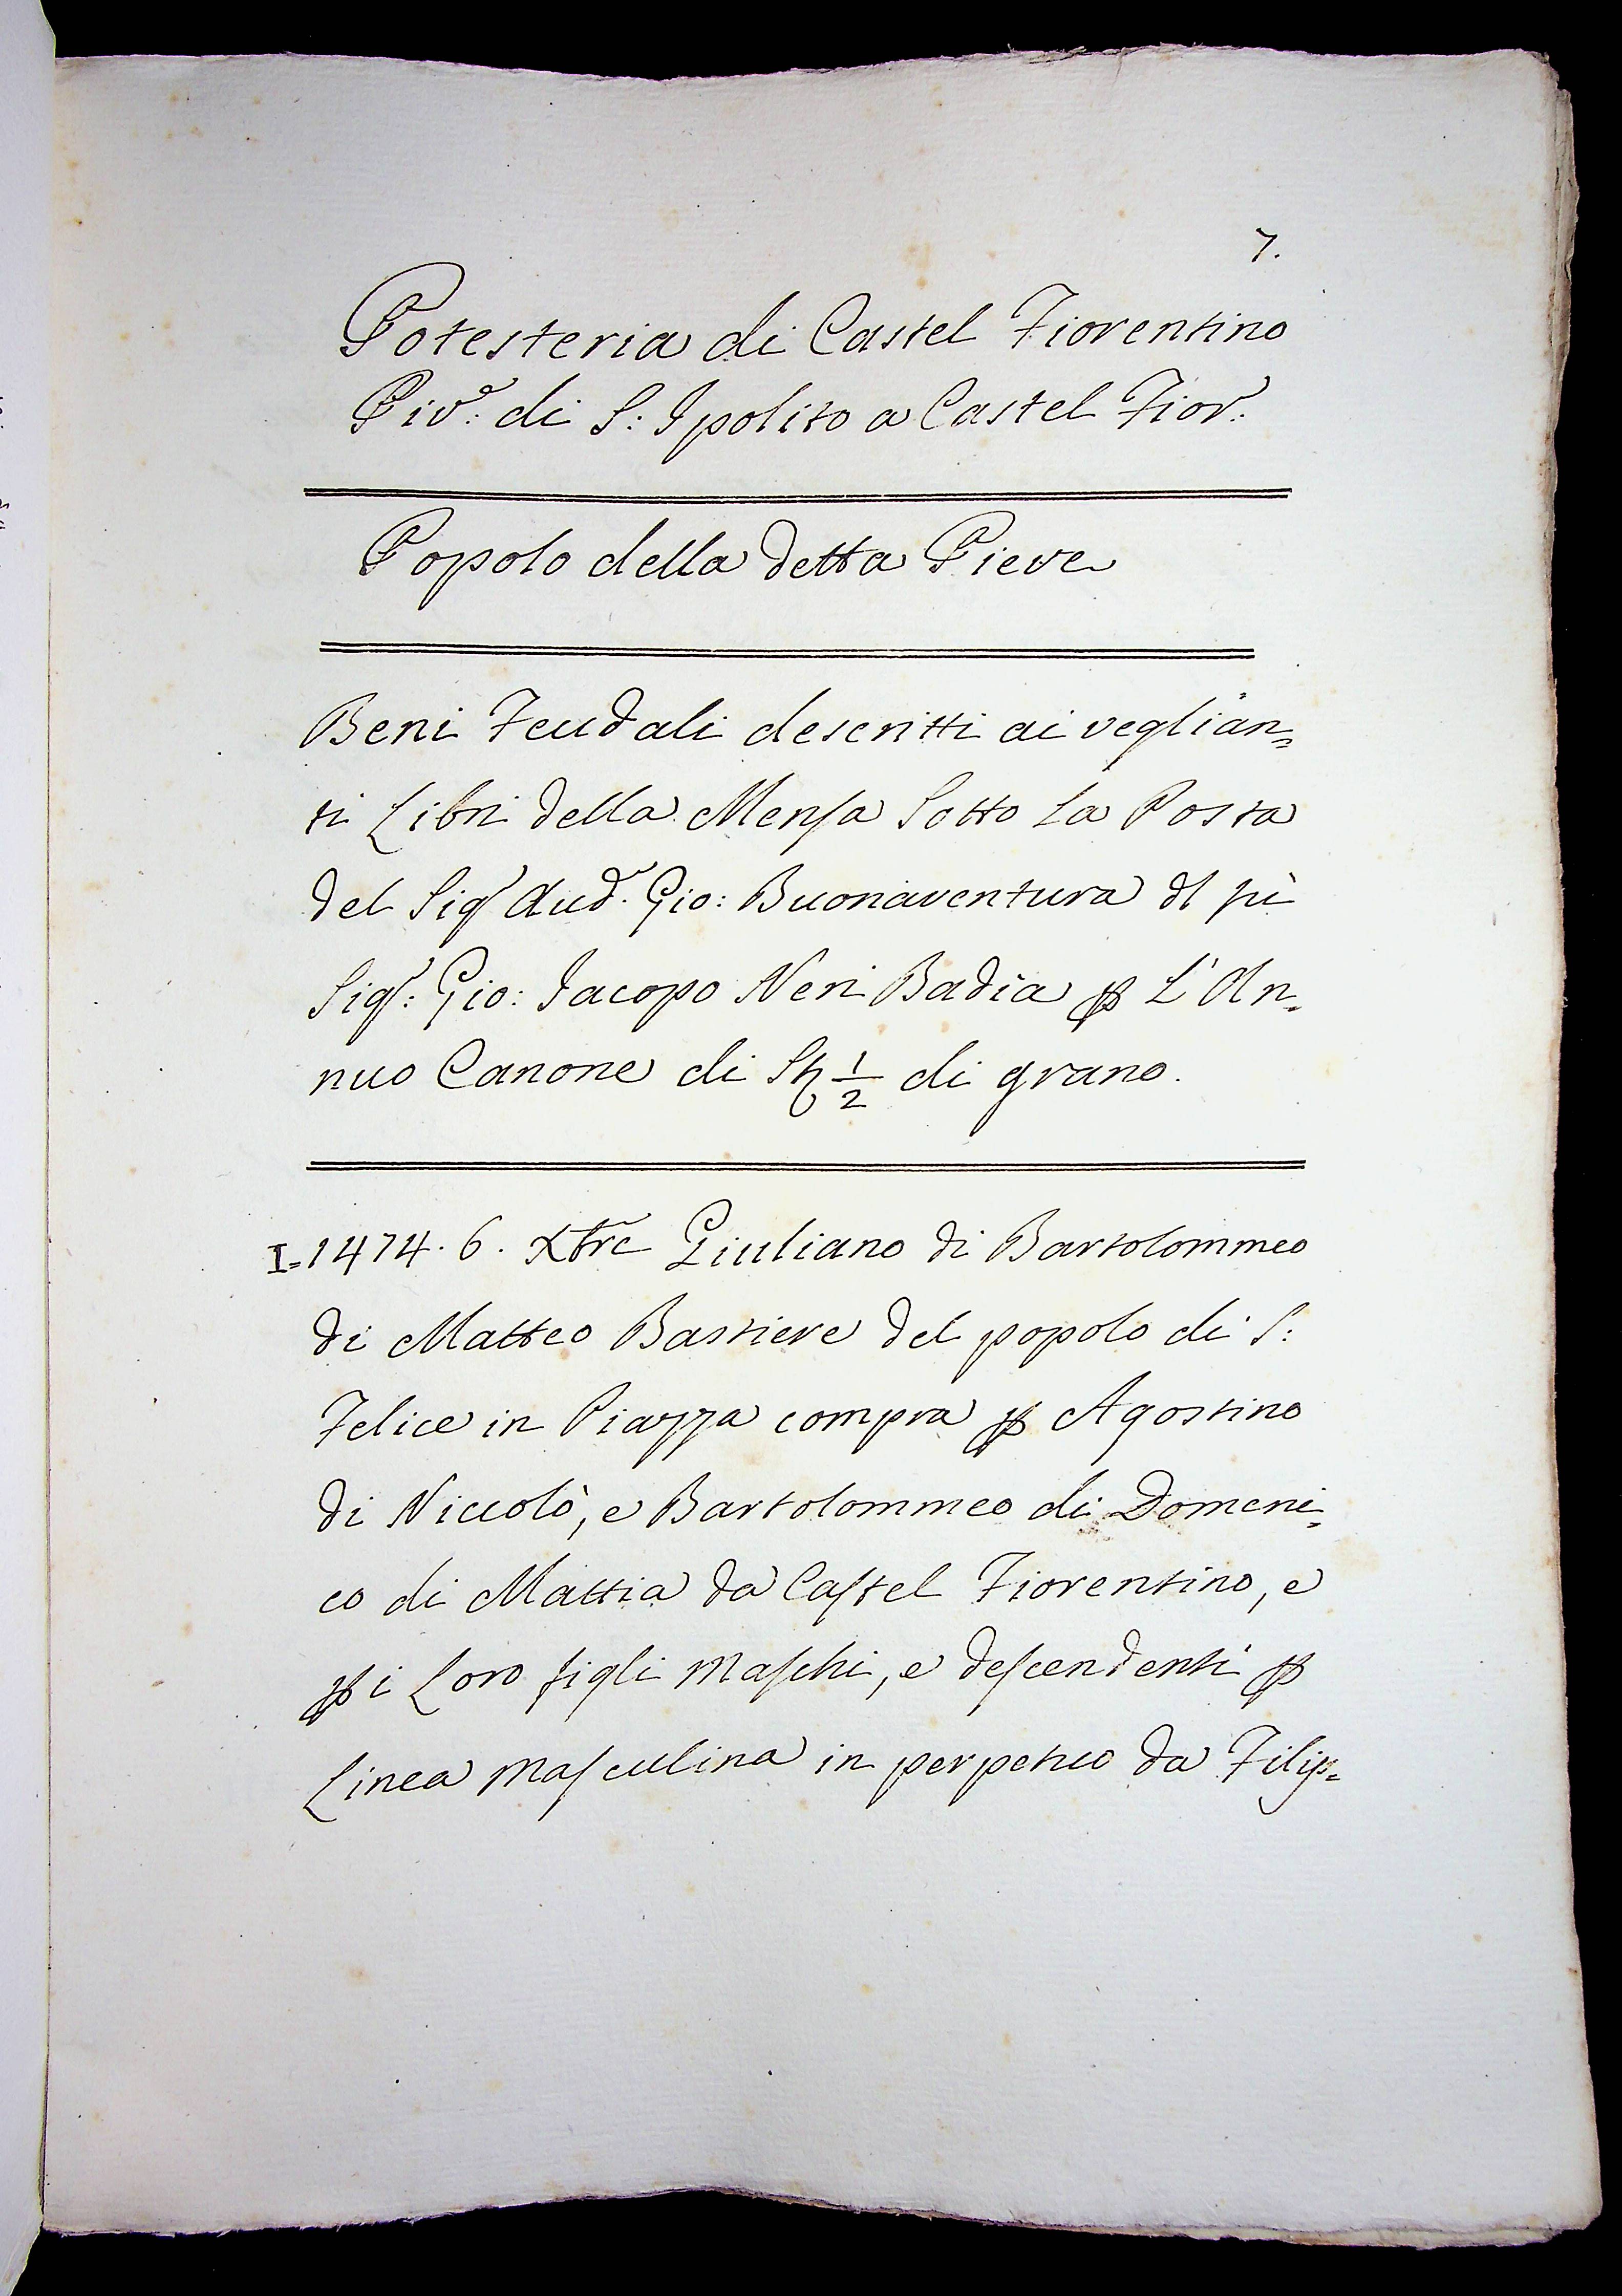 7.
Potesteria di Castel Fiorentino
Piv.e: di S: Ipolito a Castel Fior:
Popolo della detta Pieve
Beni Feudali descritti ai veglian=
ti Libri della Mensa Sotto La Posta
del Sigr Aud.r Gio: Buonaventura dl fù
Sigr: Gio: Jacopo Neri Badia ꝑ L'An=
nuo Canone di 1/2 di grano.
I=1474. 6. Xbre Giuliano di Bartolommeo
di Matteo Bastiere del popolo di S:
Felice in Piazza compra ꝑ Agostino
di Niccolò, e Bartolommeo di Domeni=
co di Mattia da Castel Fiorentino, e
ꝑ i Loro figli Maschi, e descendenti ꝑ
Linea Masculina in perpetuo da Filip=